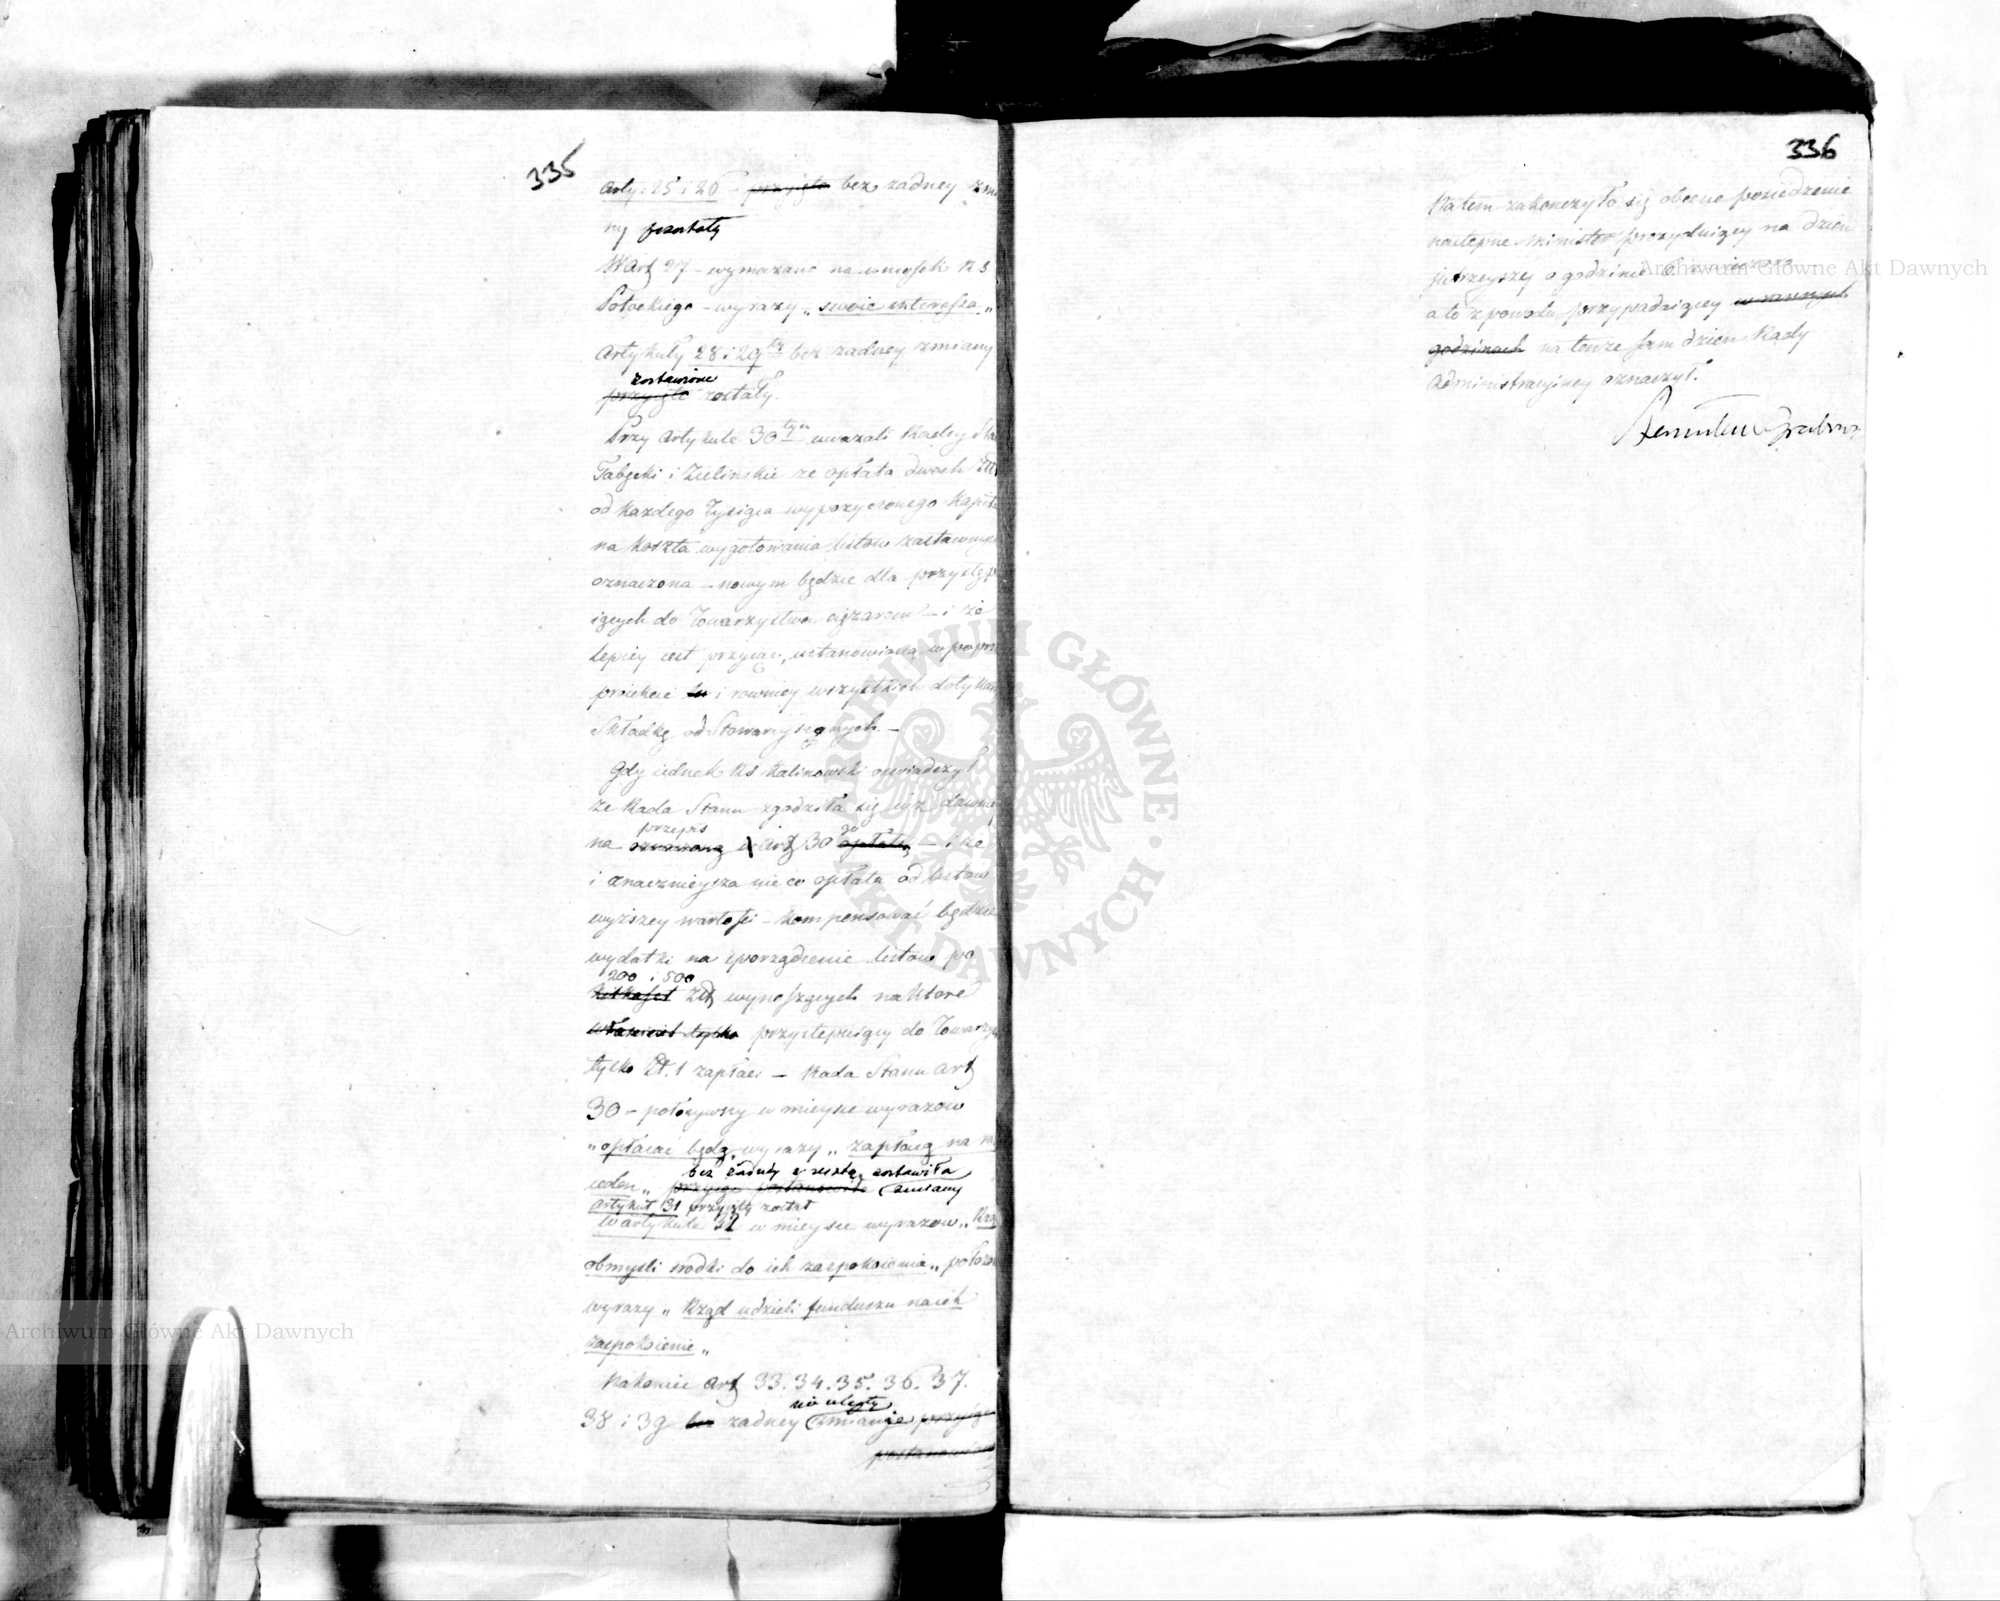 335
Arty: 25 i 26 przyięte bez zadney zmia
ny pozostały
W Art 27 – wymazano na wniosek RS
Potockiego – wyrazy „swoie interessa„
Artykuły 28 i 29ty bez zadney zmiany
zostawione
przyięte zostały.
Przy Artykule 30tym uwazali Radcy Stanu
Tabęcki i Zieliński ze opłata dwoch Zł
od kazdego Tysiąca wypozyczonego Kapita
na koszta wygotowania listow zastawnych
oznaczona – nowym będzie dla przystępu
iących do Towarzystwa ciężarem – i że
lepiey iest przyiąć, ustanowioną w poprz
proiekcie i rowniey wszystkich dotyka
Składkę od Stowarzyszonych. –
Gdy iednak RS Kalinowski oswiadczył
ze Rada Stanu zgodziła się iuz dawniey
przepis
na oznaczoną w Art 30 go opłatę – i ze
i znacznieysza nieco opłata od listow
wyższey wartości – kompensować będzie
wydatki na sporządzenie listow po
200 i 500
kilkaset Złt wynoszących na ktore
właściciel tylko przystępuiący do Towarzys
tylko Zł. 1 zapłaci – Rada Stanu Art
30 – położywszy w mieysce wyrazow
„opłacać będą„ wyrazy „zapłacą na raz
bez zadney z resztą zostawiła
ieden„ przyiąć postanowiła zmiany
Artykuł 31 przyięty został
W artykule 32 w mieysce wyrazow „Rząd
obmyśli srodki do ich zaspokoienia„ położo
wyrazy „Rząd udzieli funduszu na ich
zaspokoienie„
Nakoniec Art 33. 34. 35. 36. 37.
nie uległy
38 i 39 bez zadney zmianie przyięte
postanowiono
336
Na tem zakończyło się obecne posiedzenie
następne Minister prezyduiący na dzien
jutrzeyszy o godzinie 6 wieczorem
a to z powodu przypadaiącey w rannych
godzinach na tenze sam dzien Rady
Administracyiney oznaczył.
Archiwum Główne Akt Dawnych
ARCHIWUM GŁÓWNE · AKT DAWNYCH ·
Archiwum Główne Akt Dawnych